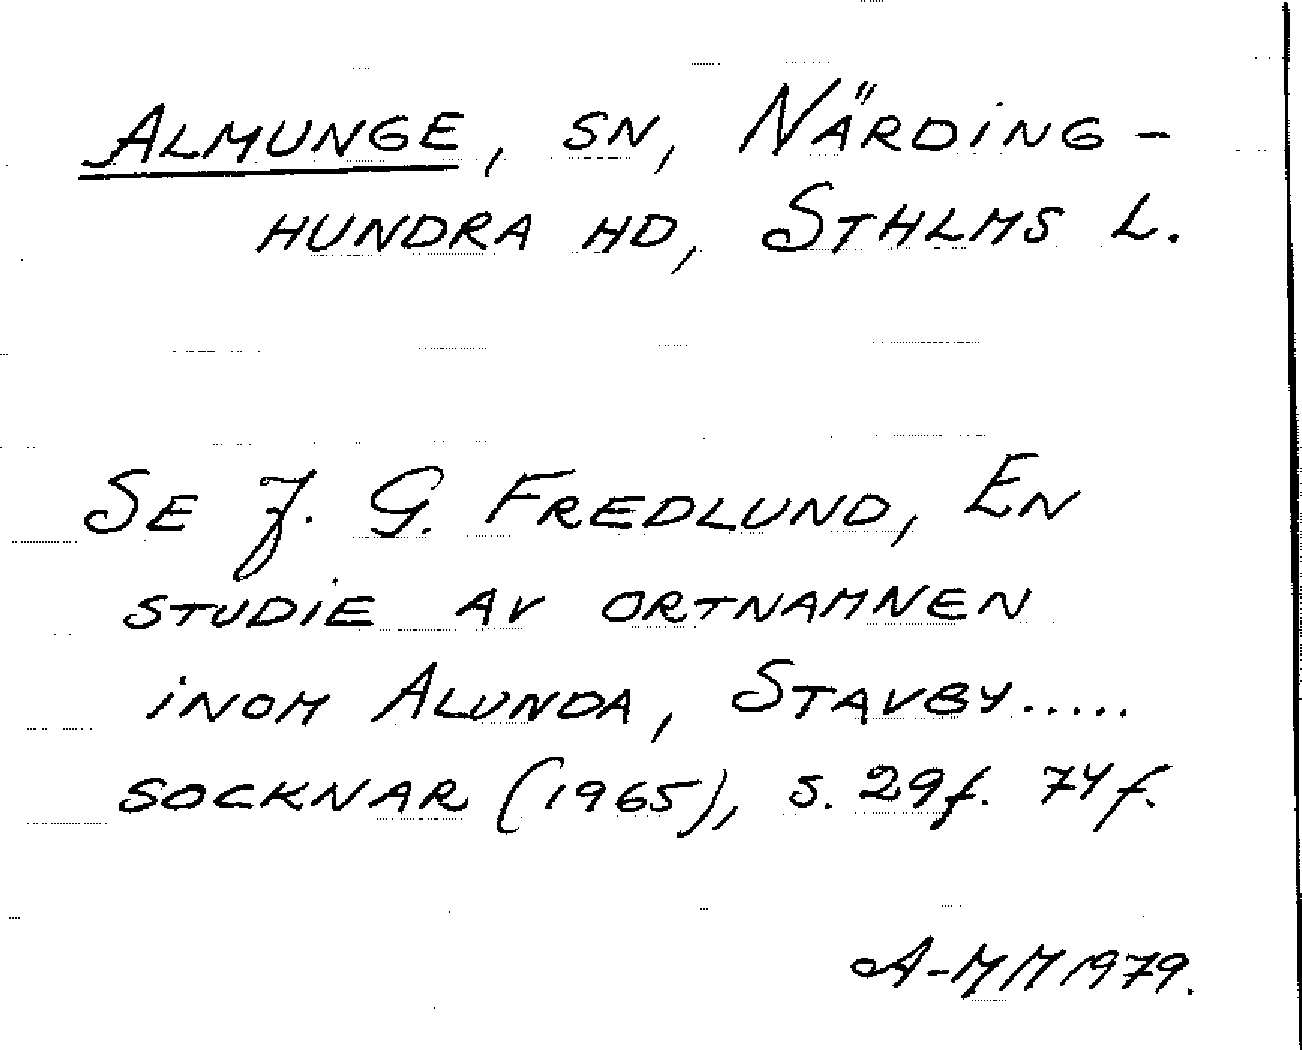 ALMUNGE, SN, NÄRDING-
HUNDRA HD, STHLMS L.
SE J. G. FREDLUND, EN
STUDIE AV ORTNAMNEN
INOM ALUNDA, STAVBY.....
SOCKNAR (1965), S. 29f. 74f.
A-MM 1979.